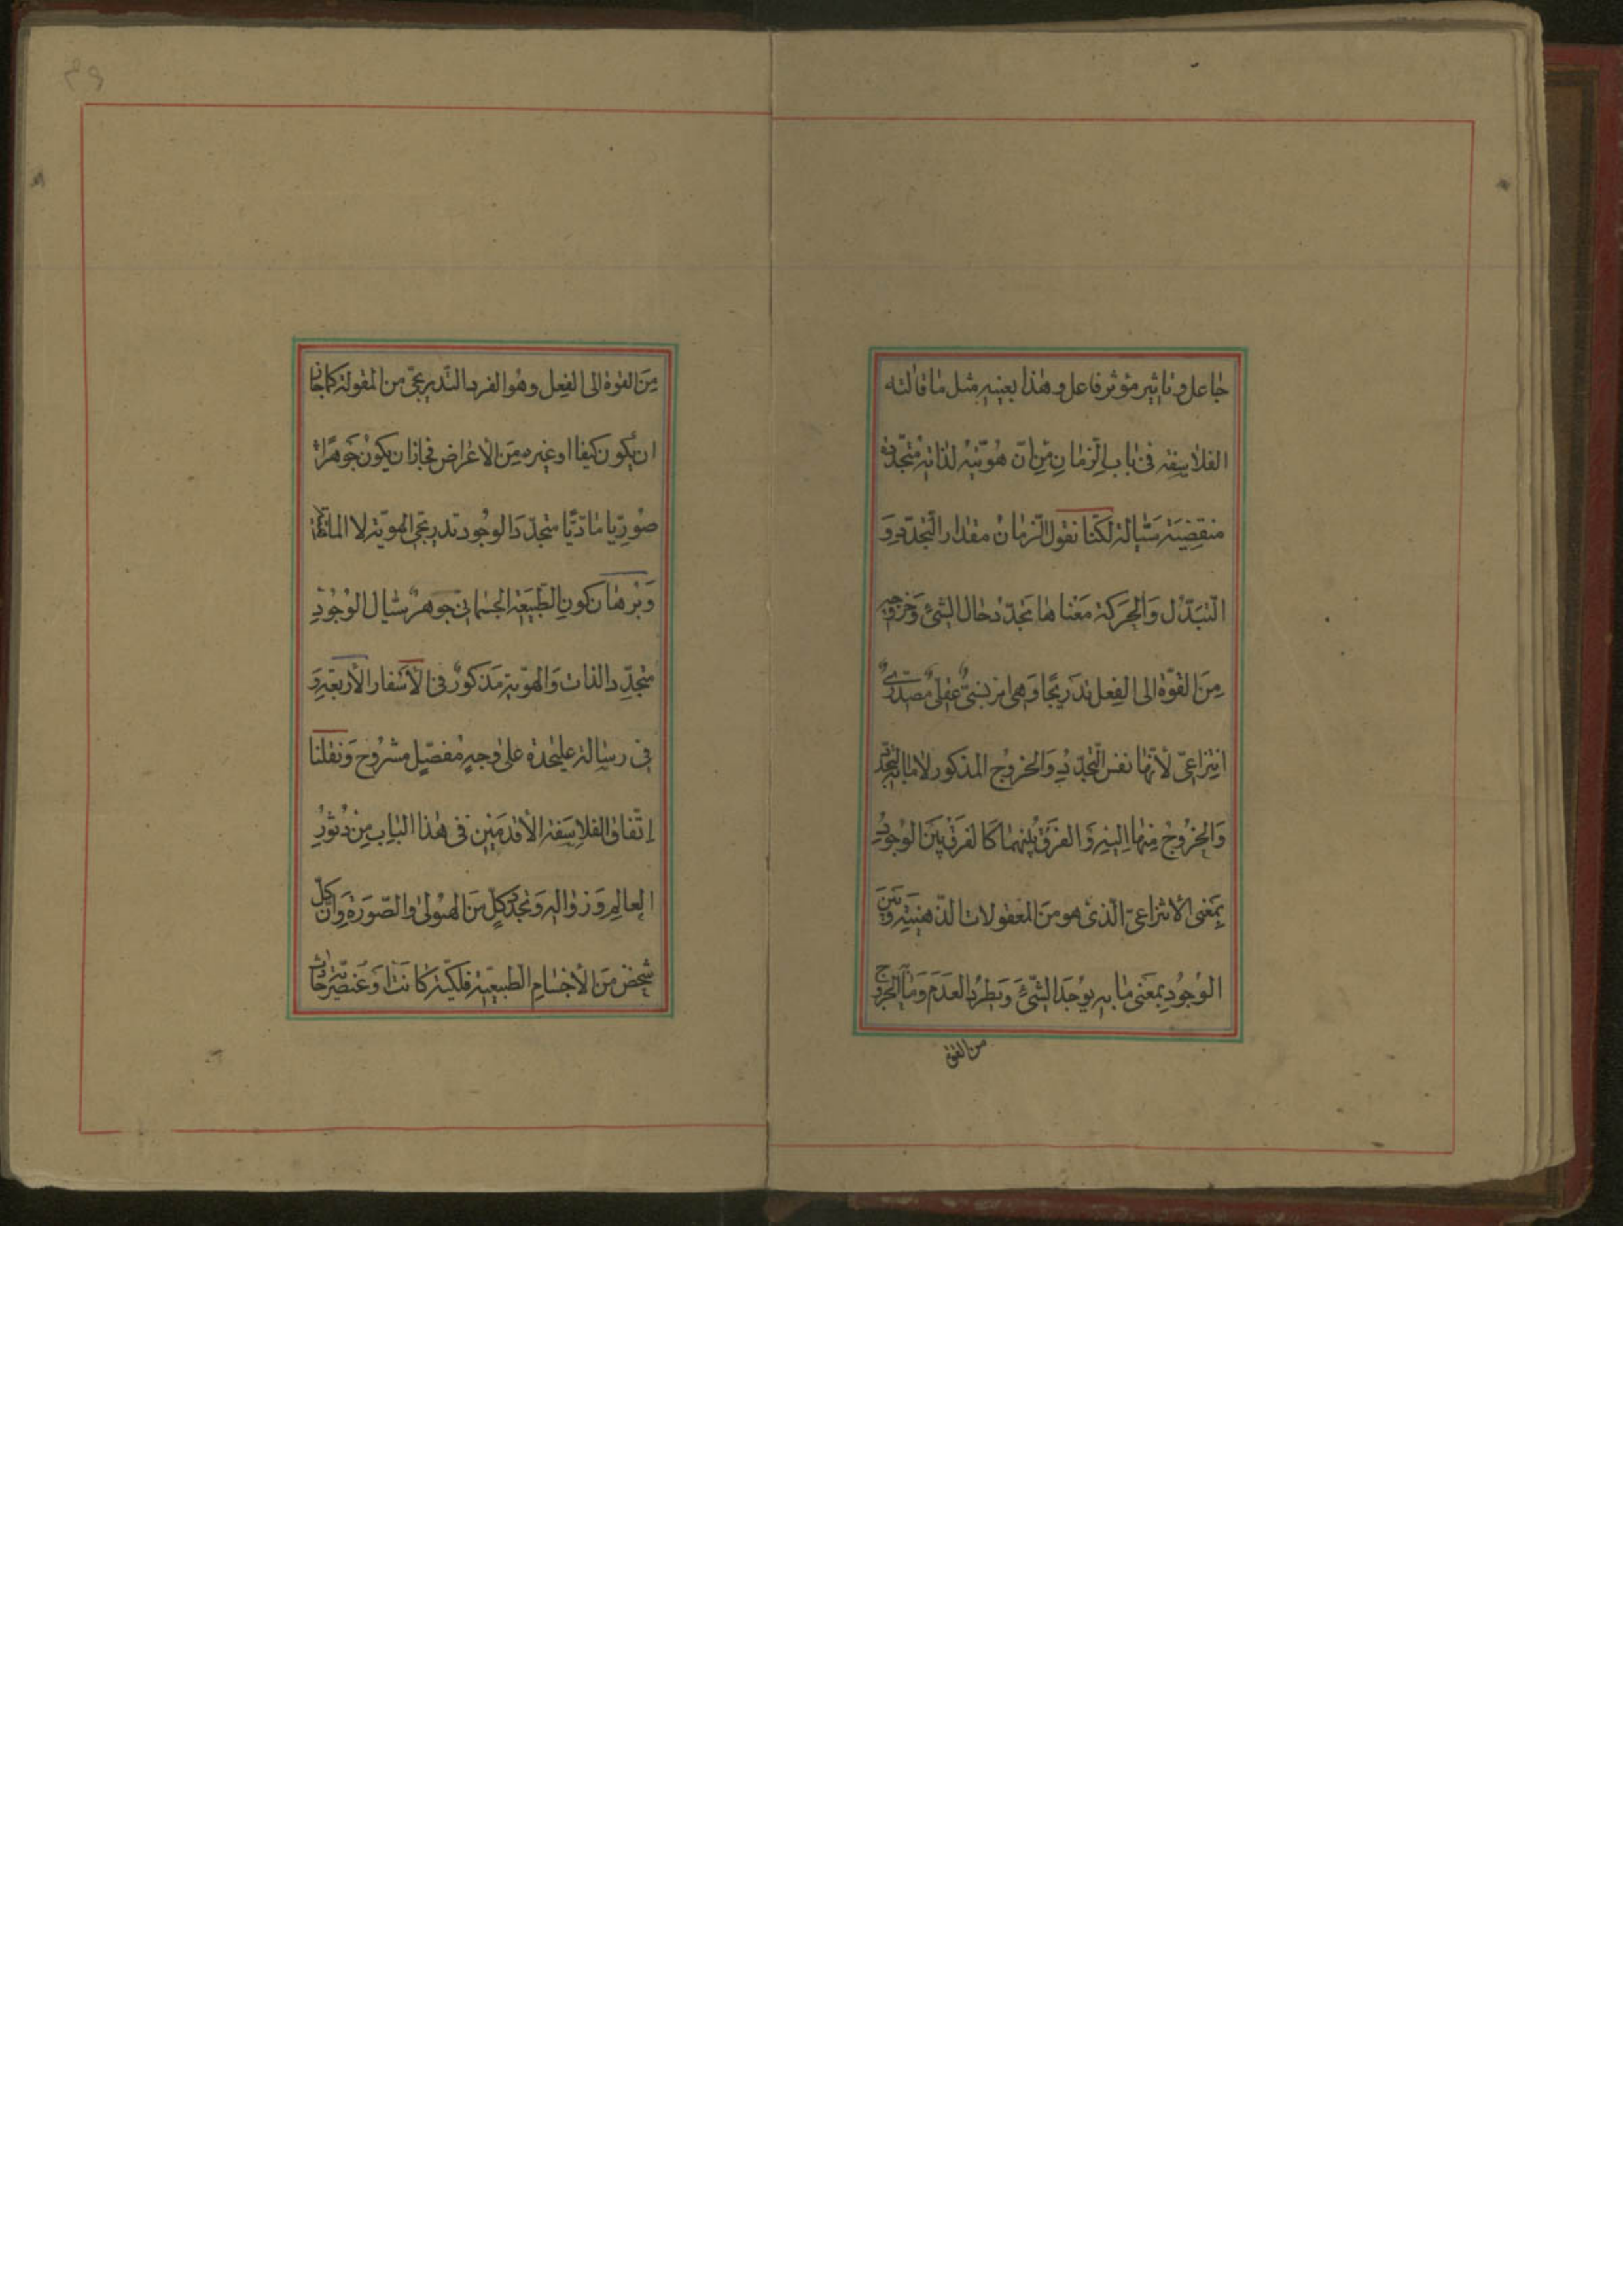 جاعل و تاثير مؤثر فاعل و هذا بعينه مثل ما قالته
الفلاسفه فى باب الزّمانِ مِن انّ هُوّيته لذاته مُتجدّدة
منقضِيَة سَيّالة لكنّا نقول الزّمانُ مقدار التّجدّد وَ
التّبَدّل وَالحَركة مَعْناها تجدّد حال الشئ وَخروجه
مِنَ القوّة الى الفِعل تدَريجًا وَهى امر نِسبىٌّ عقلىٌّ مصدَرىٌّ
انتِزاعىّ لأنّها نفس التّجدّدِ وَالخروُج المذكور لا ما به التّجدّد
وَالخرُوجُ مِنها اليه وَ الفَرقُ بينهما كالفَرق بَينَ الوُجودِ
بمَعْنى الانتزاعىّ الّذى هو مِنَ المعَقولات الذّهنيّة وَبَين
الوُجُودِ بمعَنى ما به يوُجَد الشّئَ وَ يَطرُد العَدَم وَ مَا به الخرُوج
من القوّة
مِنَ القوة الى الفِعل و هُو الفرد التّدريجىّ من المقولة كما جاز
ان يكُون كيفا او غيره مِنَ الأعْراض فجاز ان يَكونُ جَوهَرًا
صُورِيّا مادّيًّا متجدّدَ الوجُود تدريجىّ الهوّية لا الماهيّة
وَبُرهان كونِ الطّبيعَة الجسمانىّ جوهرٌ سَيّال الوُجُودِ
متجدّد الذات وَالهوّية مَذكورٌ فى الأسْفار الأربَعَةِ وَ
فى رسالة عليحدة على وَجهٍ مُفصّلٍ مشرُوح وَنقلنا
اِتّفاق الفلاسَفة الأقدَمين فى هذا البَاب مِن دُثورِ
العالم وَ زوالِه وَ تجدّد كلٍّ مِنَ الهيُولى و الصّورَة وَانّ كلّ
شخص مِنَ الأجسَامِ الطّبيعيّة فلكيّة كانَت اَو عُنصريّة حادث